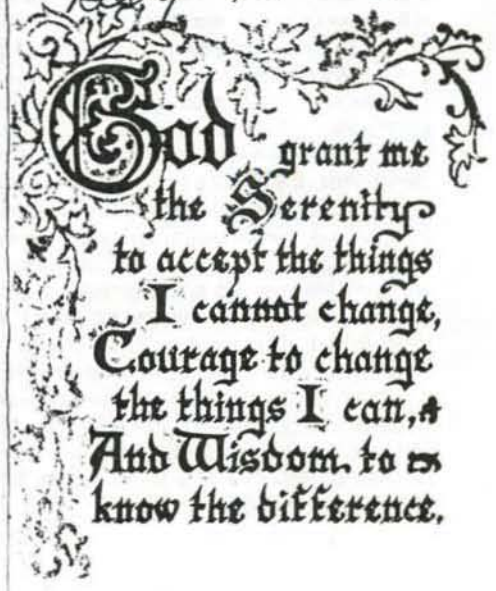 God grant me
the Serenity
to accept the things
I cannot change,
Courage to change
the things I can,
And Wisdom to
know the difference.